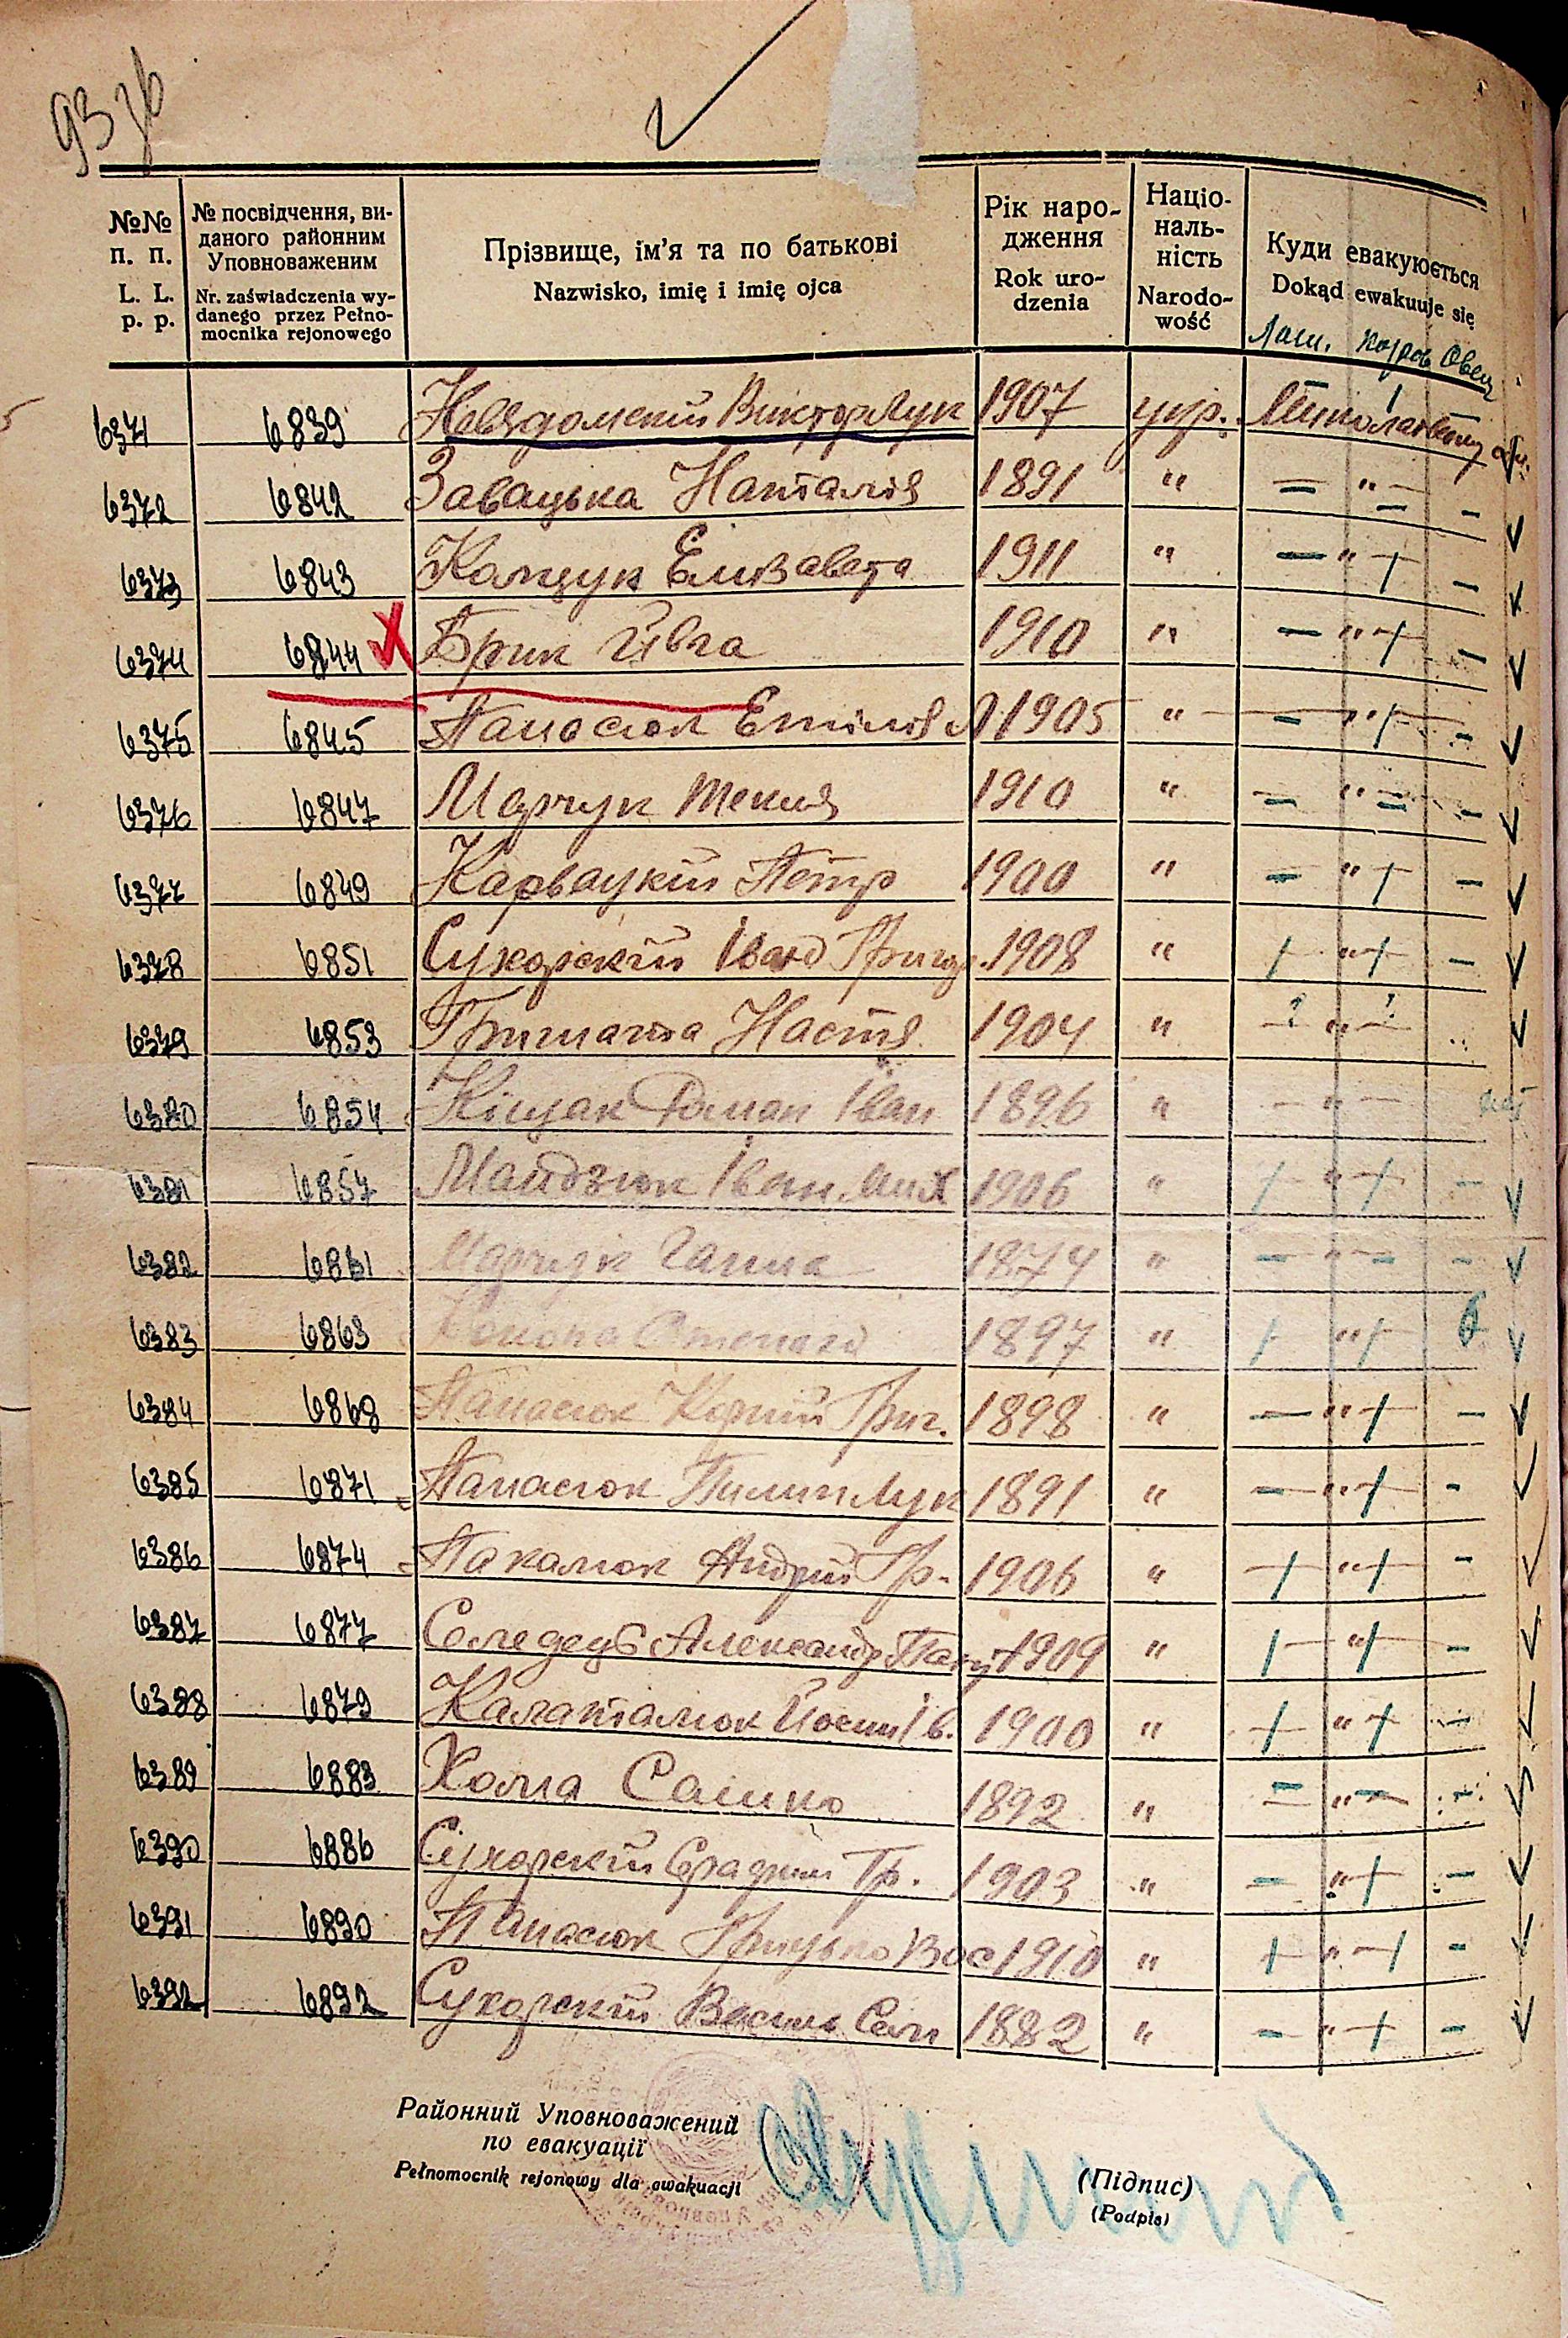 93 зв
№№ п. п. L. L. p. p.
№ посвідчення, виданого районним Уповноваженим
Nr. zaświadczenia wydanego przez Pełnomocnika rejonowego
Прізвище, ім'я та по батькові
Nazwisko, imię i imię ojca
Рік народження
Rok urodzenia
Національність
Narodowość
Куди евакуюється
Dokąd ewakuuje się
Лош. коров Овец
6371 6839 Невядомский Виктор Лук 1907 укр.
6372 6842 Завацька Наталія 1891 "  — " —
6373 6843 Елизавета 1911 "  — " —
6374 6844 Брик Ивга 1910 "  — " —
6375 6845 Панасюк Емілія Л 1905 "  — " —
6376 6847 Марчук Текля 1910 "  — " —
6377 6849 Карвацкій Петр 1900 "  — " —
6378 6851 Сухорскій Іван Григор. 1908 "  — " —
6379 6853 Настя 1904 "  — " —
6380 6854 Кіщак Роман Іван 1896 "  — " —
6381 6857 Мандзюк Іван Мих 1906 "  — " —
6382 6861 Марчук Ганна 1874 "  — " —
6383 6863 1897 "  — " —
6384 6868 Панасюк Корнии Григ. 1898 "  — " —
6385 6871 Панасюк Пилип Лук 1891 "  — " —
6386 6874 Андрій Гр. 1906 "  — " —
6387 6877 Александр 1909 "  — " —
6388 6879 Йосип Ів. 1900 "  — " —
6389 6883 Хома Сашко 1892 "  — " —
6390 6886 Сухорскій Гр. 1903 "  — " —
6391 6890 Панасюк Грицько Вас 1910 "  — " —
6392 6892 Сухорскій Василь Сем 1882 "  — " —
Районний Уповноважений
по евакуації
Pełnomocnik rejonowy dla awakuacji
(Підпис)
(Podpis)